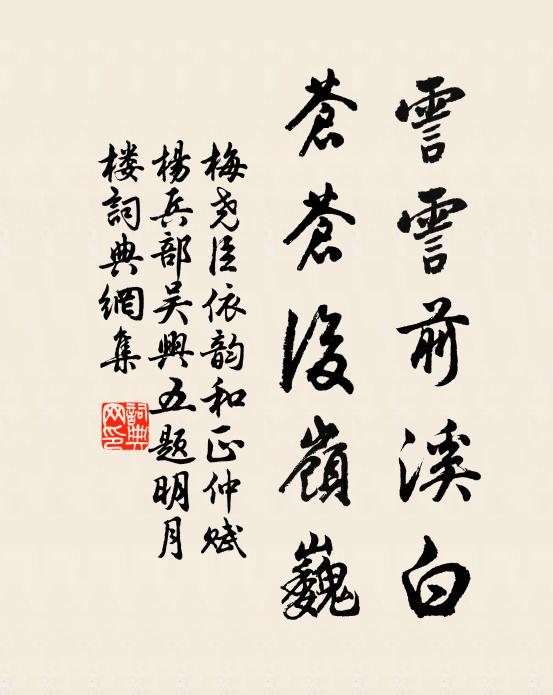 霅霅前溪白
蒼蒼後嶺巍
梅尧臣依韵和正仲赋
楊兵部吴興五题明月
楼詞典網集
詞典
网印